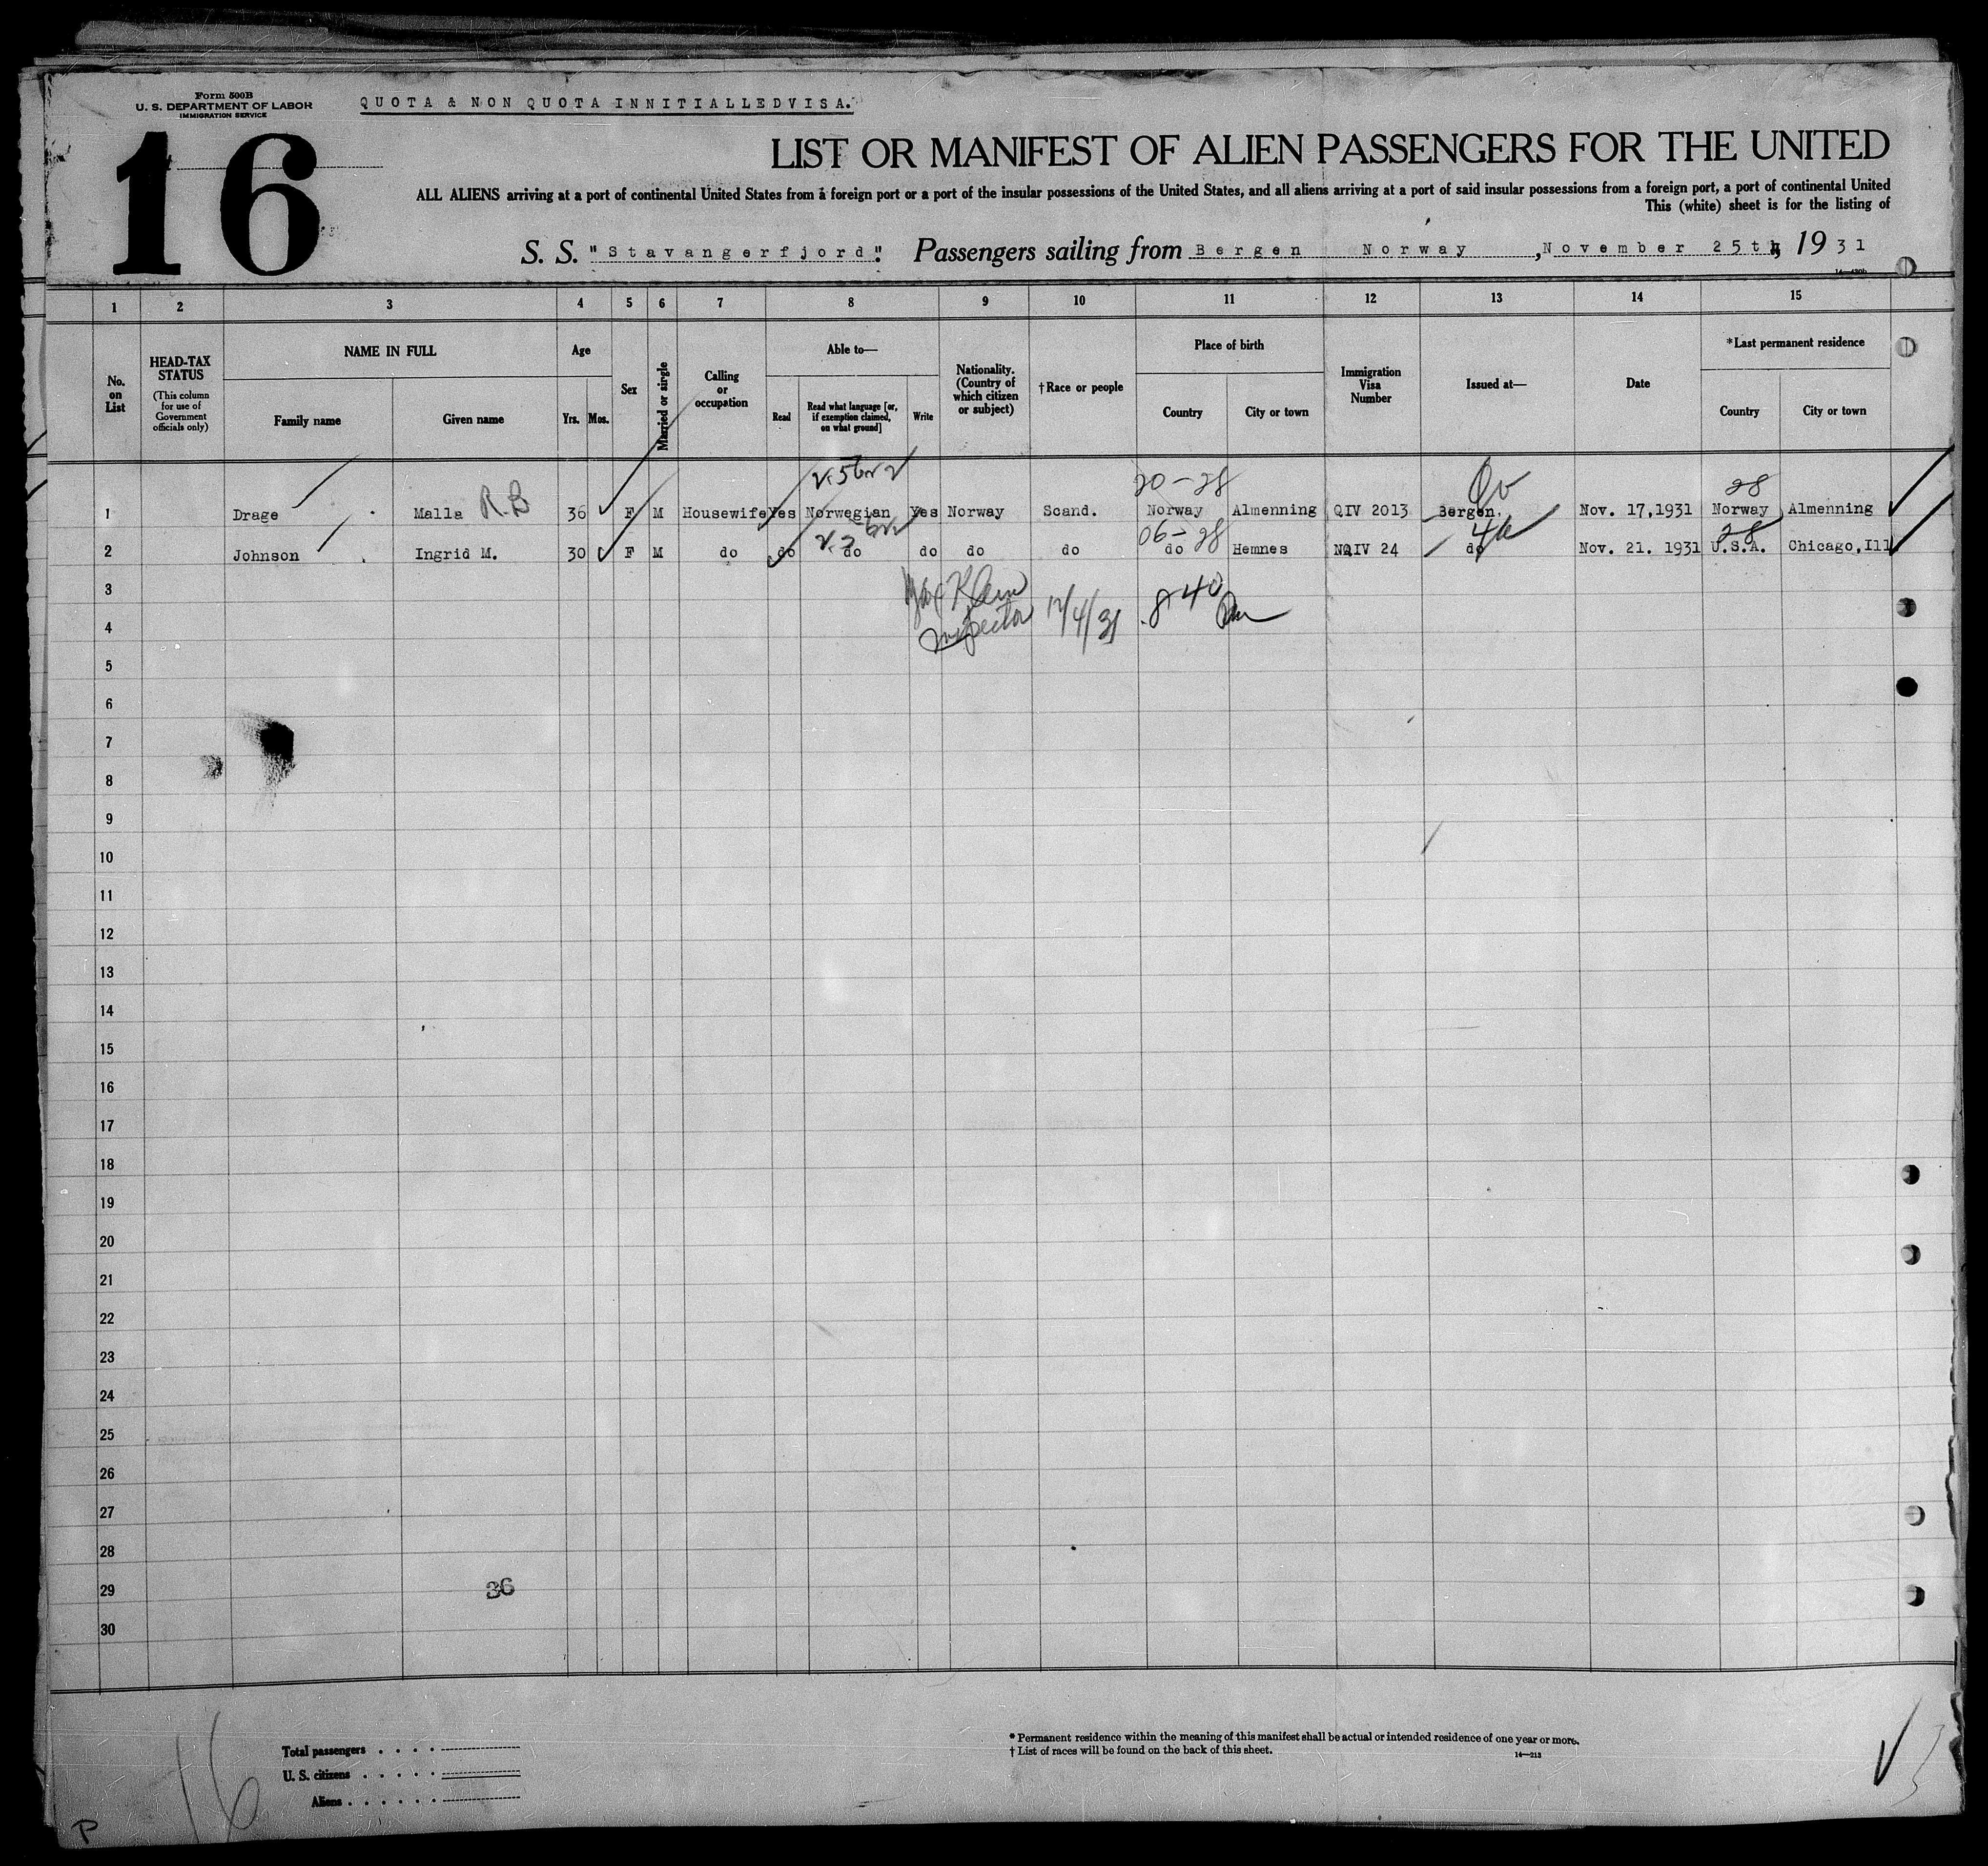 Form 500B
U. S. DEPARTMENT OF LABOR
IMMIGRATION SERVICE
QUOTA & NON QUOTA INNITIALLEDVISA.
16
LIST OR MANIFEST OF ALIEN PASSENGERS FOR THE UNITED
ALL ALIENS arriving at a port of continental United States from a foreign port or a port of the insular possessions of the United States, and all aliens arriving at a port of said insular possessions from a foreign port, a port of continental United
This (white) sheet is for the listing of
S. S. "Stavangerfjord". Passengers sailing from Bergen Norway, November 25th, 1931
1 2 3 4 5 6 7 8 9 10 11 12 13 14 15
No. on List
HEAD-TAX STATUS
(This column for use of Government officials only)
NAME IN FULL
Family name Given name
Age
Yrs. Mos.
Sex
Married or single
Calling or occupation
Able to—
Read
Read what language [or, if exemption claimed, on what ground]
Write
Nationality. (Country of which citizen or subject)
†Race or people
Place of birth
Country City or town
Immigration Visa Number
Issued at—
Date
*Last permanent residence
Country City or town
20-28 28
1 Drage Malla R.B 36 F M Housewife Yes Norwegian Yes Norway Scand. Norway Almenning QIV 2013 Bergen. Nov. 17,1931 Norway Almenning
06-28 28
2 Johnson Ingrid M. 30 F M do do do do do do do Hemnes NQIV 24 do Nov. 21. 1931 U.S.A. Chicago, Ill
3
Max Klein
Inspector 12/4/31 8 40 Am
4
5
6
7
8
9
10
11
12
13
14
15
16
17
18
19
20
21
22
23
24
25
26
27
28
29 36
30
Total passengers
U. S. citizens
Aliens
* Permanent residence within the meaning of this manifest shall be actual or intended residence of one year or more.
† List of races will be found on the back of this sheet.
14—213
16
P